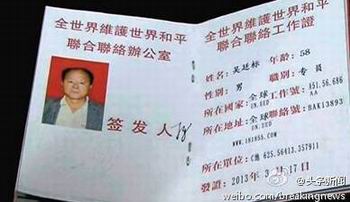 全世界維護世界和平
聯合聯絡辦公室
签发人
全世界維護世界和平
聯合聯絡工作證
姓名:吴廷标 年齡:58
性别:男 職别:专员
所在國家:全球工作號:A51.56.686
UN.EUD AA
所在地址:全球聯絡號:BAK13893
UN.EUD
WWW.181855.COM
所在單位:C池 625.56413.357911
發證:2013年3月17日
@头条新闻
weibo.com/breakingnews